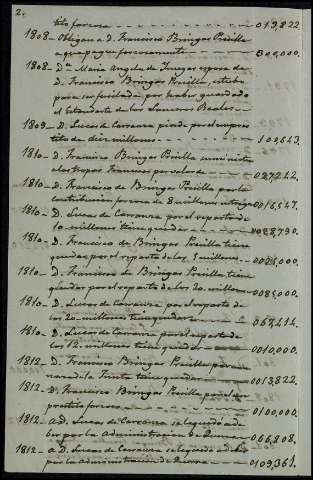 2.
tito forzoso - - - - - - - 013,822.
1808- Obligan a D. Francisco Bringas Presilla
a que pague forzosamente - - - 300,000.
1808- Dª Maria Angela de esposa de
D. Francisco Bringas Presilla, estubo
para ser fusilada por haber guardado
el Estandarte de los Lanceros Reales -
1809- D. Lucas de Carranza pierde por el empres
tito de diez millones - - - - 109,643.
1810- D. Francisco Bringas Presilla suministra
a las tropas Francesas por valor de 027,242.
1810- D. Francisco de Bringas Presilla por la
contribucion forzosa de 8 millones entrega 0016,547.
1810- D. Lucas de Carranza por el reparto de
10 millones tiene que dar - - 0028,790.
1810- D. Francisco de Bringas Presilla tiene
que dar por el reparto de los 5 millones - 0025,000.
1810- D. Francisco de Bringas Presilla tiene
que dar por el reparto de los 20 millones 0085,000.
1810- D. Lucas de Carranza por el reparto de
los 20 millones tiene que dar - 068,214.
1810- D. Lucas de Carranza por el reparto de
los 12 millones tiene que dar - 0010,000.
1812- D. Francisco Bringas Presilla para
la Junta tiene que dar - 0013,822.
1812- D. Francisco Bringas Presilla por el em
prestito forzoso - - - - 0100,000.
1812- A D. Lucas de Carranza se le quedó a de
ber por la administracion de 066,808.
1812- A D. Lucas de Carranza se le quedó a deber
por la administracion de 0109,361.